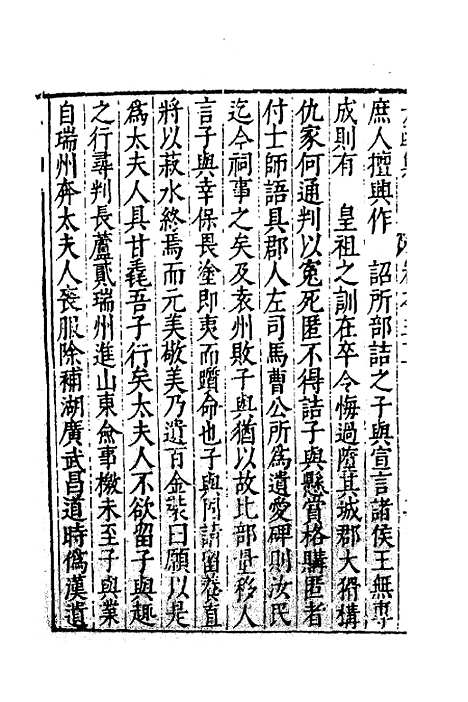 庶人擅興作　詔所部詰之子與宣言諸侯王無專
成則有　皇祖之訓在卒令悔過墮其城郡大猾構
仇家何通判以寃死匿不得詰子與懸賞格購匿者
付士師語具郡人左司馬曹公所爲遺愛碑則汝民
迄今祠事之矣及袁州敗子與猶以故比部量移人
言子與幸保畏塗即夷而躓命也子與
請留養直
將以菽水終焉而元美敬美乃遺百金裝曰願以是
爲太夫人具甘毳吾子行矣太夫人不欲留子與趣
之行尋判長蘆貳瑞州進山東僉事檄未至子與業
自瑞州奔太夫人喪服除補湖廣武昌道時僞漢遺